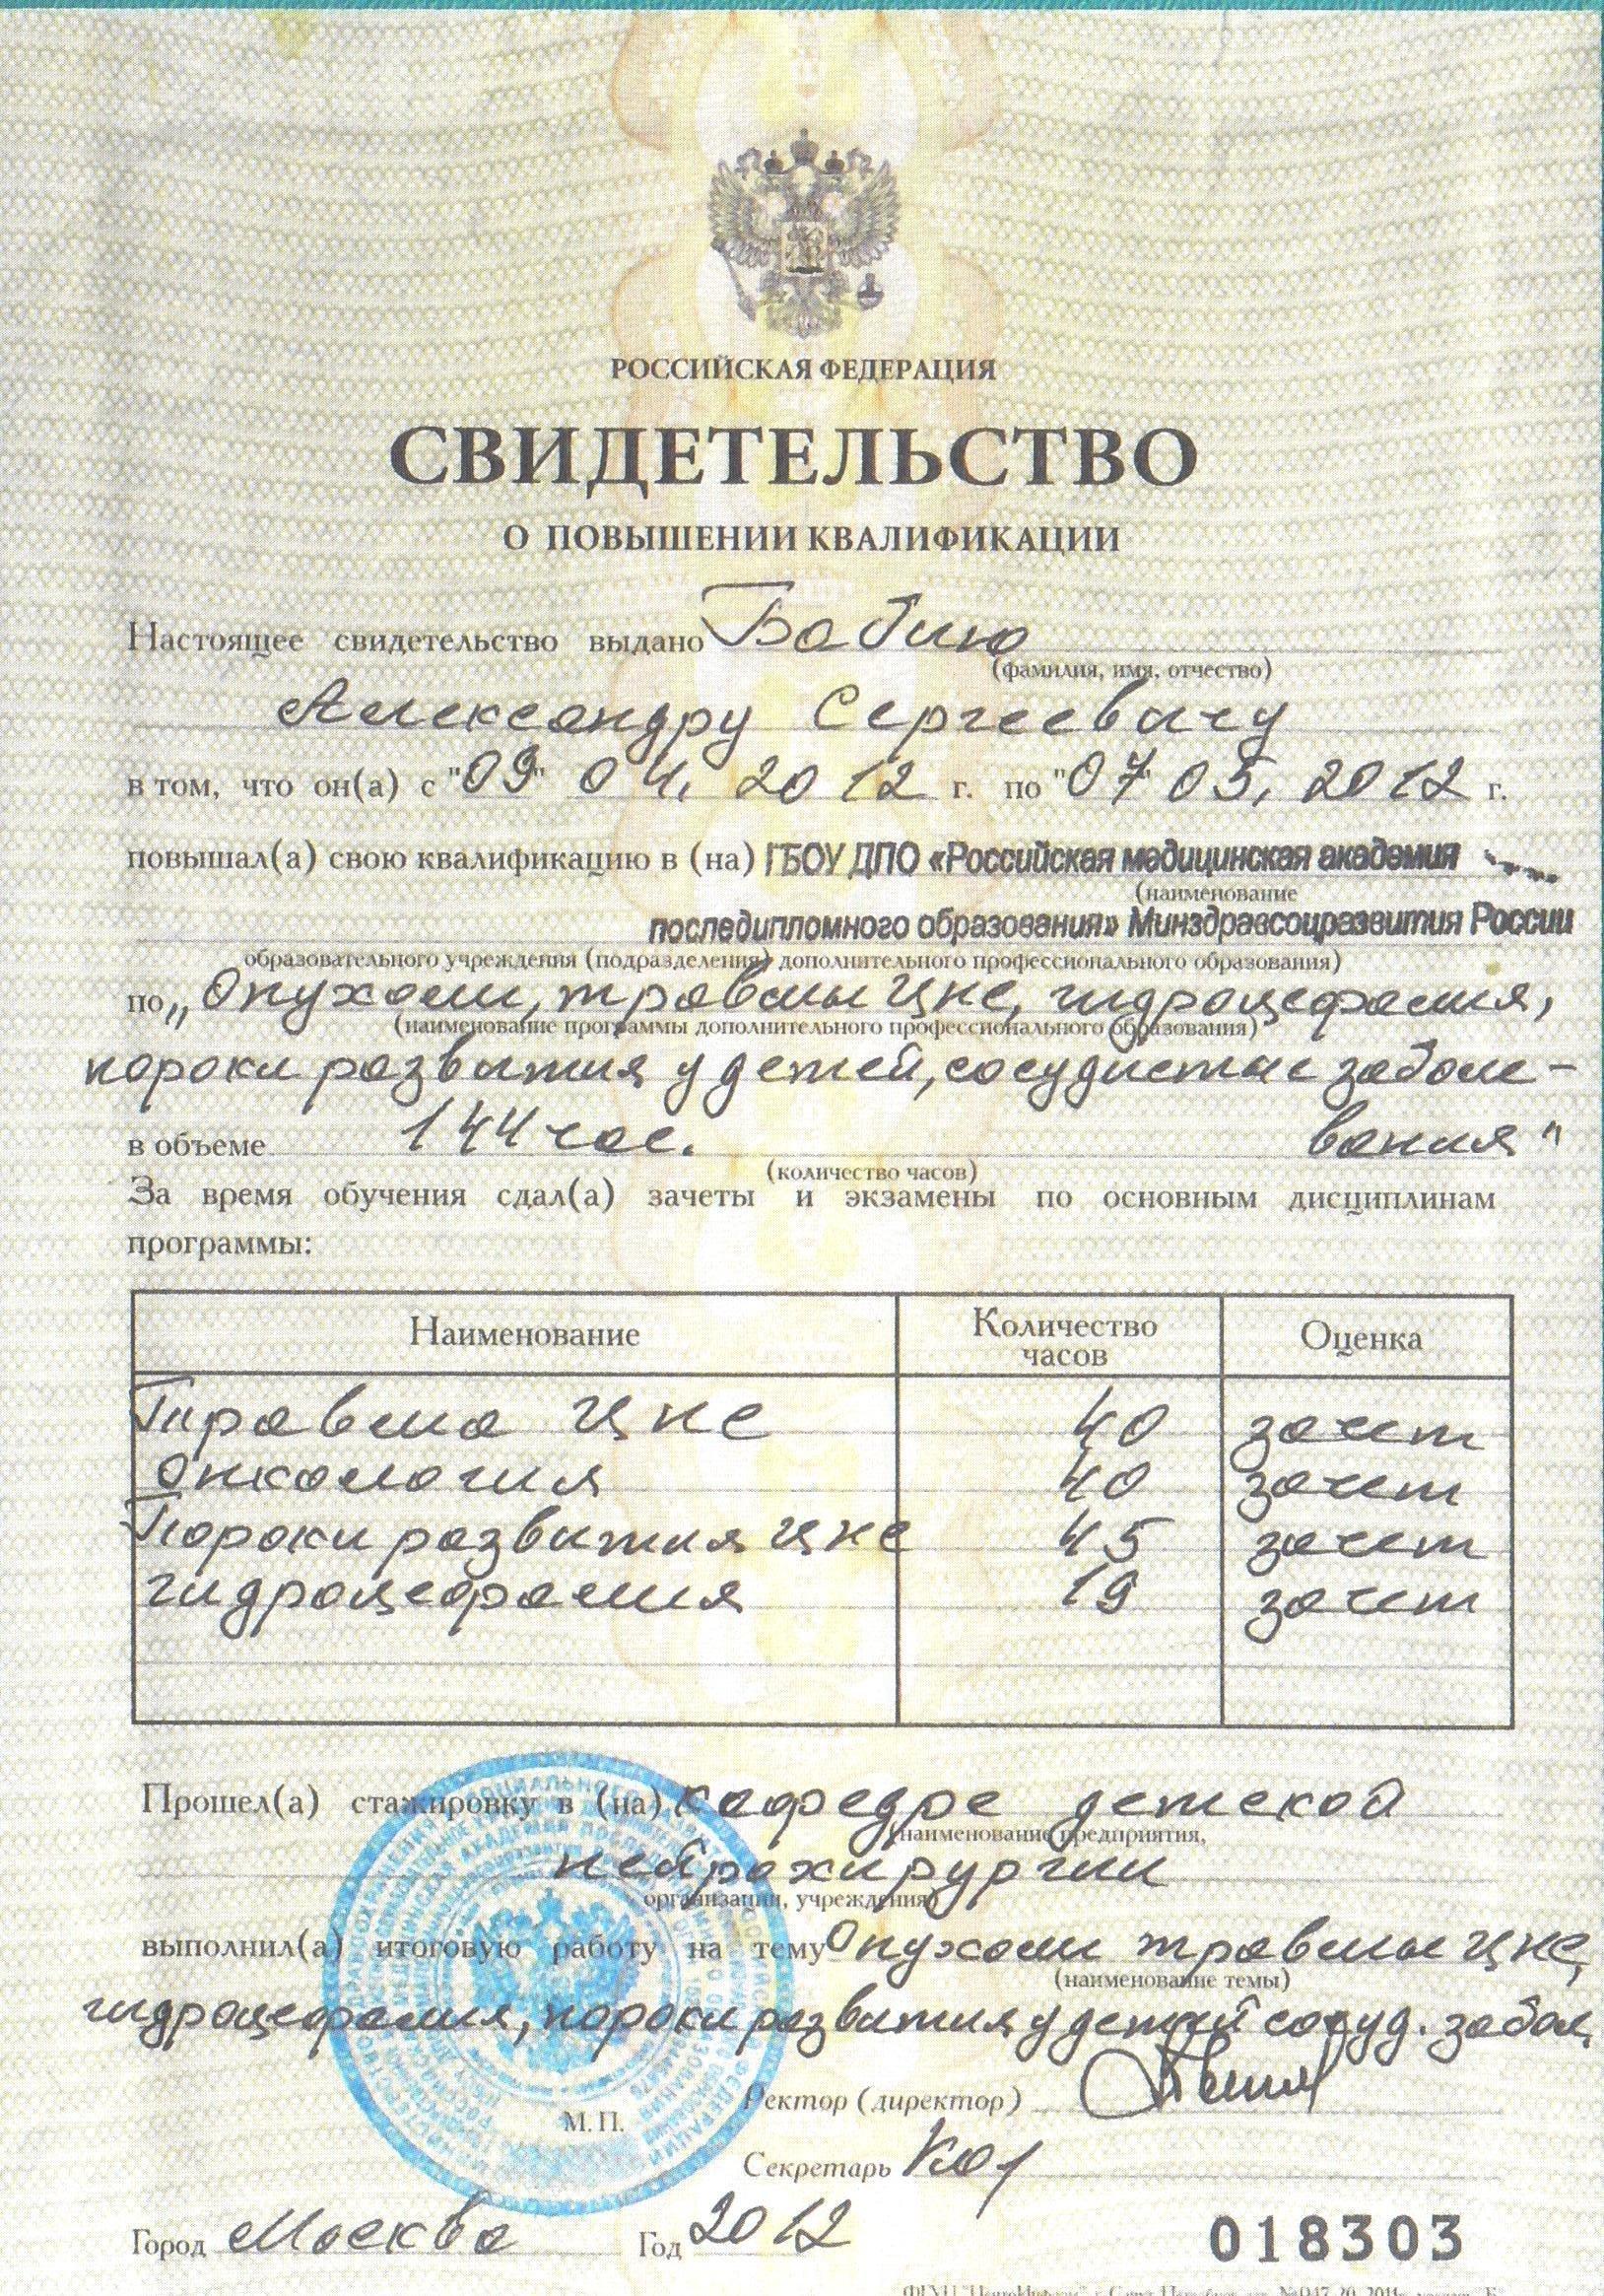 РОССИЙСКАЯ ФЕДЕРАЦИЯ
СВИДЕТЕЛЬСТВО
О ПОВЫШЕНИИ КВАЛИФИКАЦИИ
Настоящее свидетельство выдано Бабину
(фамилия, имя, отчество)
Александру Сергеевичу
в том, что он(а) с "09" 04. 2012 г. по "07" 05. 2012 г.
повышал(а) свою квалификацию в (на) ГБОУ ДПО «Российская медицинская академия
(наименование
последипломного образования» Минздравсоцразвития России
образовательного учреждения (подразделения) дополнительного профессионального образования)
по „Опухоли, травмы ЦНС, гидроцефалия,
(наименование программы дополнительного профессионального образования)
пороки развития у детей, сосудистые заболе-
в объеме 144 час. вания"
(количество часов)
За время обучения сдал(а) зачеты и экзамены по основным дисциплинам
программы:
Наименование Количество часов Оценка
Травма ЦНС 40 зачет
Онкология 40 зачет
Пороки развития ЦНС 45 зачет
гидроцефалия 19 зачет
Прошел(а) стажировку в (на) кафедре детской
(наименование предприятия,
нейрохирургии
организации, учреждения)
выполнил(а) итоговую работу на тему Опухоли травмы ЦНС,
(наименование темы)
гидроцефалия, пороки развития у детей сосуд. забол.
Ректор (директор)
М.П.
Секретарь
Город Москва Год 2012
018303